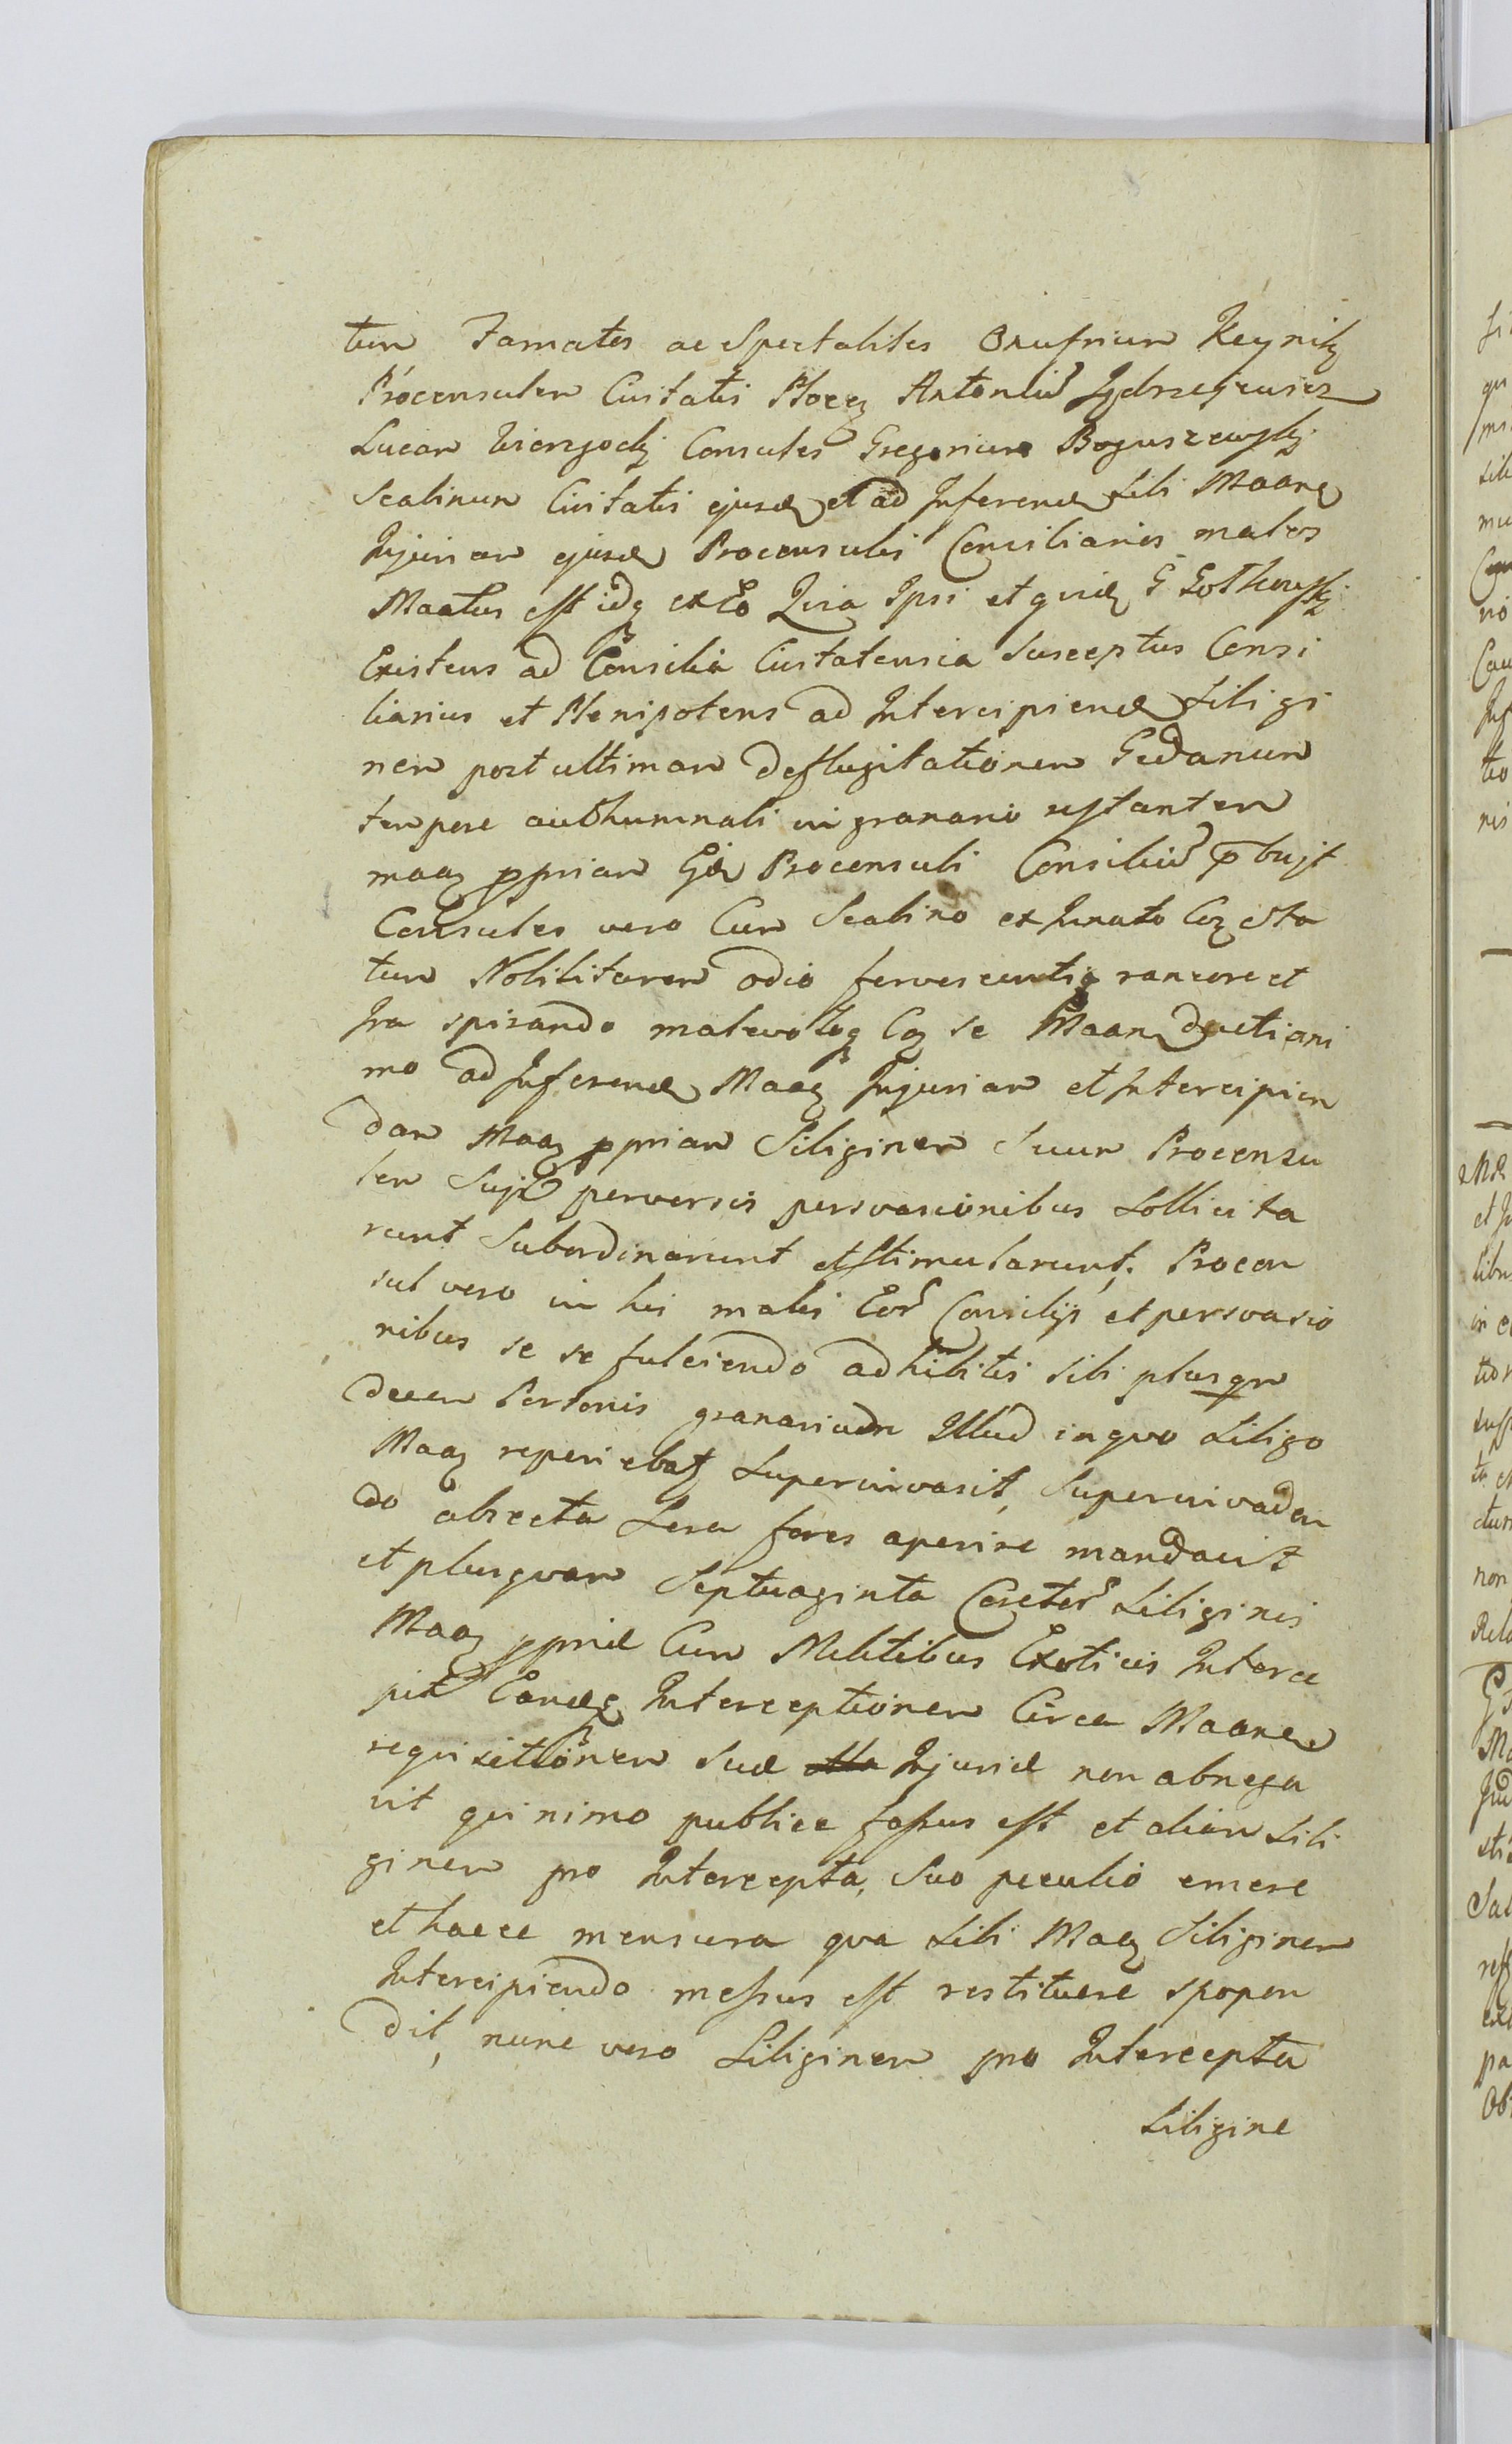 tum Famatos ac Spectabiles Onufrium Keyniky
Proconsulem Civitatis Plocen Antoniu Jędrzejewicz
Lucam Consules Gregorium Boguszewsky
Scabinum Civitatis ejusd et ad Inferend Sibi Maane
Injuriam ejusd Proconsulis Consiliarios malos
Maatus est idq ex Eo Quia Ipsi et quid G
Existens ad Consilia Civitatensia Susceptus Consi
liarius et Plenipotens ad Intercipiend Siligi
nem post ultimam deflugitationem Gedanum
tempore authumnali in granario restantem
maaq ppriam Gd Proconsuli Consiliu p buit
Consules vero Cum Scabino ex Innato Coq Sta
tum Nobilitarem odio fervescentiq rancore et
Ira spirando malevoloq Coq se Maane ducti ani
mo ad Inferend Maaq Injuriam et Intercipien
dam Maaq ppriam Siliginem Suum Proconsu
lem Supt perversis persvasionibus Sollicita
runt Subordinarunt et Stimularunt, Procon
sul vero in his malis Eor Consilijs et persvasio
nibus se se fulciendo adhibitis sibi plusqm
decem Personis granarium Illud in quo Siligo
Maaq reperiebat Supervivasit, Supervivaden
do abiecta Sera fores aperire mandavit
et plusquam Septuaginta Coretor Siliginis
Maaq ppriæ Cum Militibus Exoticis Interce
pit Eandq Interceptionem Circa Maane
requisitionem Suæ Injuriæ non abnega
vit quinimo publice fassus est et aliam Sili
ginem pro Intercepta, Suo peculio emere
et haece mensura qva Sibi Maaq Siliginem
Intercipiendo messus est restituere spopon
dit, nunc vero Siliginem pro Intercepta
Siligine